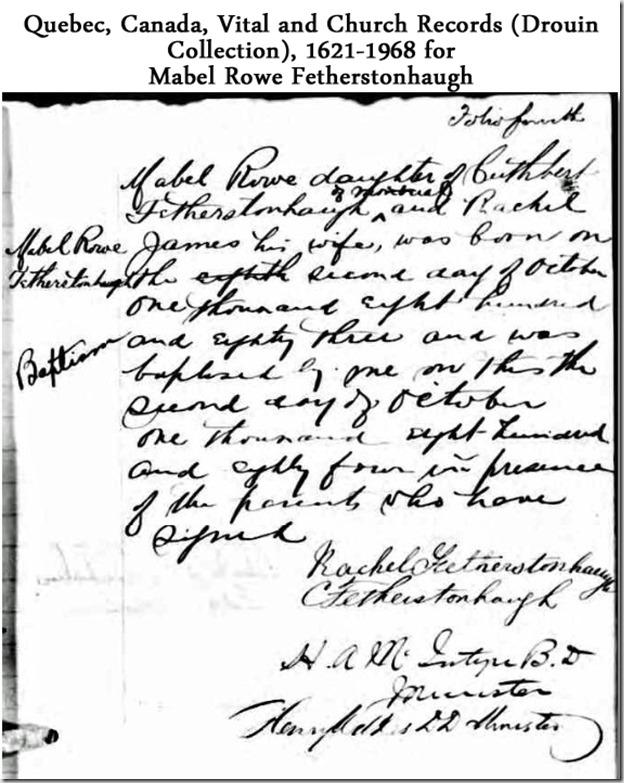 Quebec, Canada, Vital and Church Records (Drouin
Collection), 1621-1968 for
Mabel Rowe Fetherstonhaugh
Folio fourth
Mabel Rowe daughter of Cuthbert
of Montreal
Fetherstonhaugh ^ and Rachel
Mabel Rowe
Fetherstonhaugh
Baptism
James his wife, was born on
the eighth second day of October
one thousand eight hundred
and eighty three and was
baptised by me on this the
second day of October
one thousand eight hundred
and eighty four in presence
of the parents who have
signed
Rachel Fetherstonhaugh
C Fetherstonhaugh
H. A. McIntyre B.D
Minister
Henry DD Minister